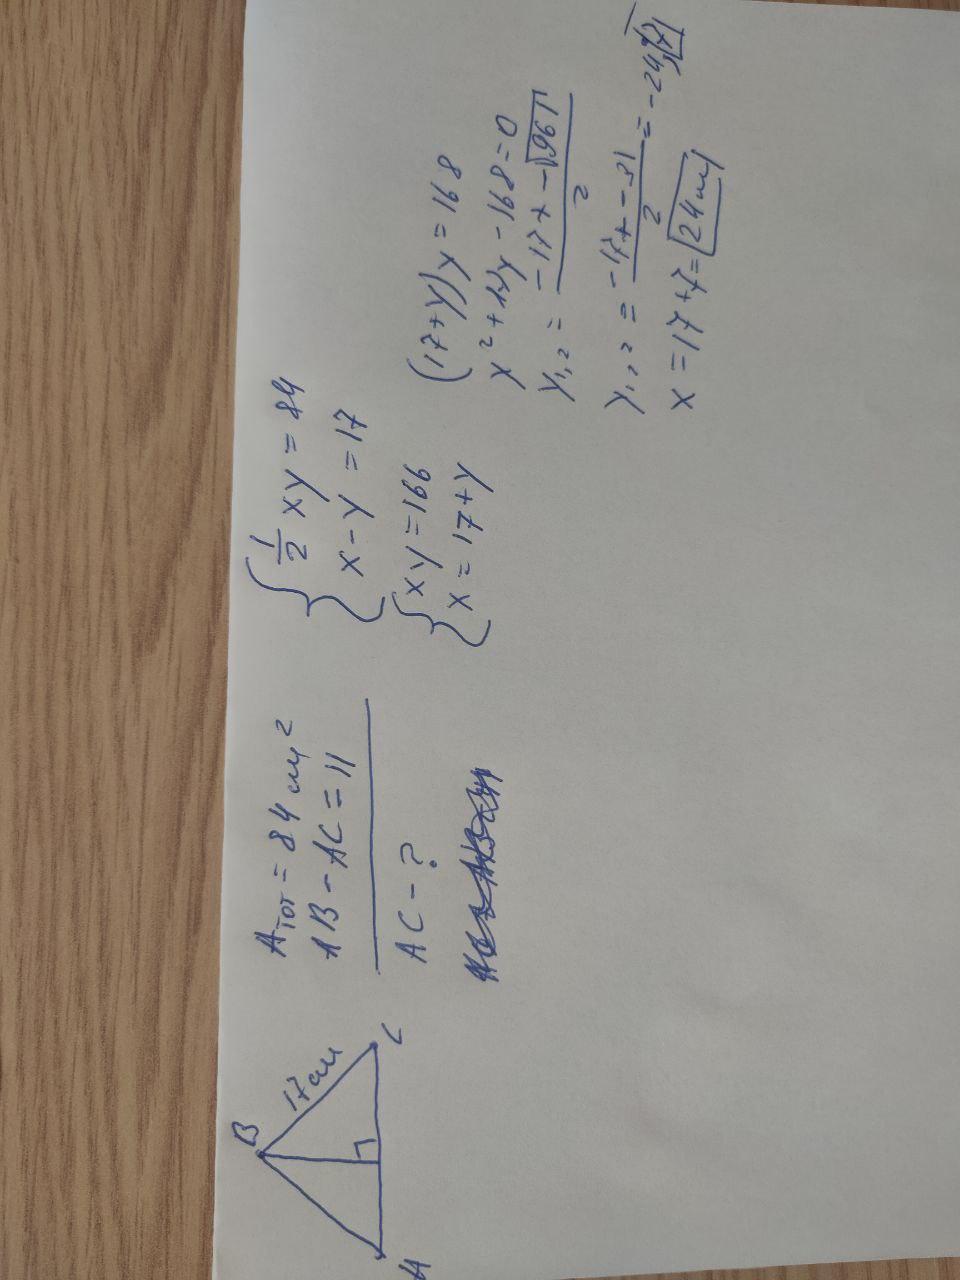 B
17 см
A
C
Aтот = 84 см²
AB - AC = 11
AC - ?
{ 1/2 xy = 84
x - y = 17
{ xy = 166
x = 17 + y
(17 + y) y = 168
y² + 17y - 168 = 0
y1,2 = -17 + - √961 / 2
y1,2 = -17 + - 31 / 2 = -24; 7
x = 17 + 7 = 24 см